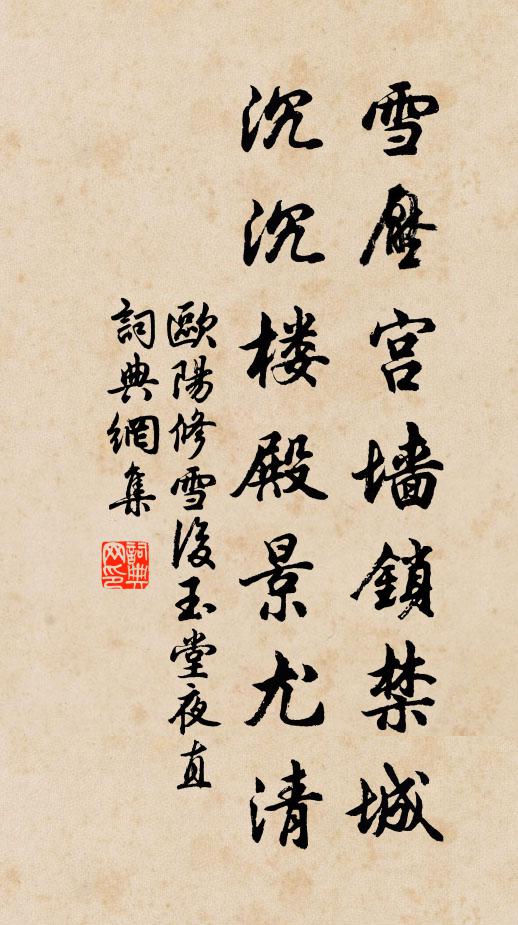 雪壓宫墙鎖禁城
沉沉楼殿景尤清
歐陽修雪後玉堂夜直
詞典網集
詞典网印